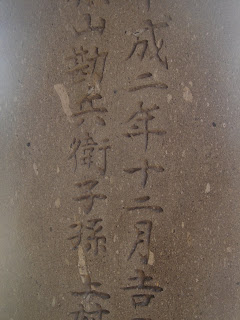 成二年十二月吉
山勘兵衛子孫